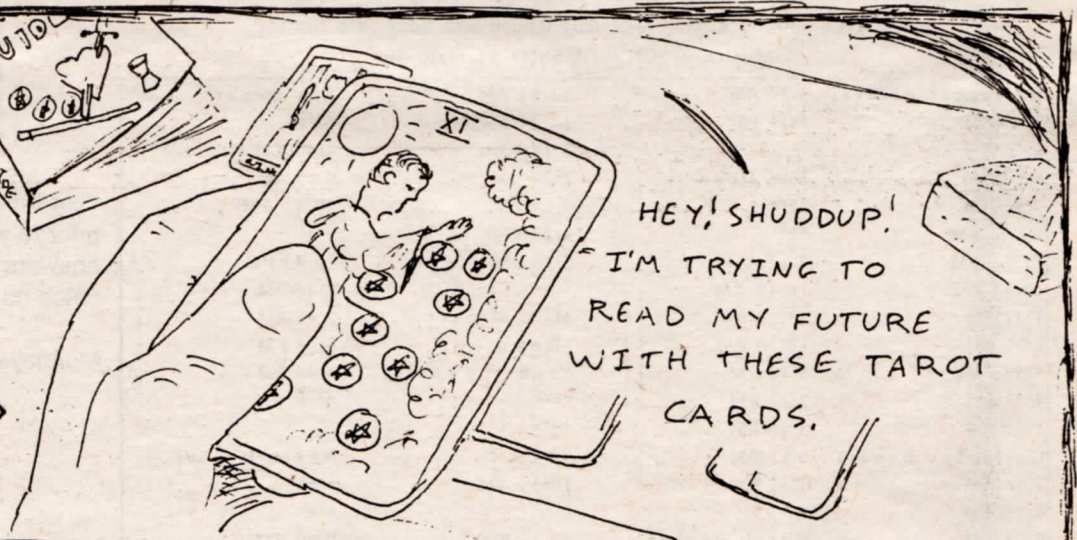 XI
HEY! SHUDDUP!
I'M TRYING TO
READ MY FUTURE
WITH THESE TAROT
CARDS.